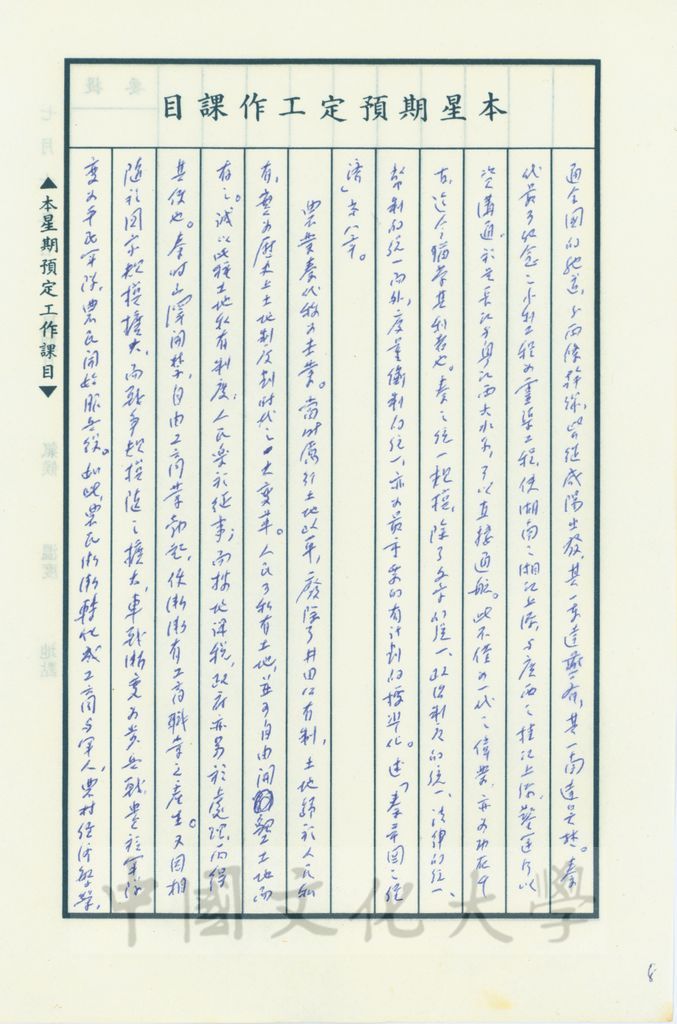 本星期預定工作課目
通全國的馳道,与兩條幹線,皆従咸陽出發,其一東達燕齊,其一南達吳楚。秦
代最可紀念之水利工程為靈渠工程,使湖南之湘江上源,与廣西之桂江上源,鑿運河以
資溝通。於是長江与粤江兩大水系,可以直接通航。此不僅為一代之偉業,亦為功在千
古,迄今猶蒙其利者也。秦之統一規模,除了文字的統一、政治制度的統一、法律的統一、
幣制的統一而外,度量衡制的統一,亦為最重要的有計劃的標準化。述「秦帝國之經
濟」第八。
農業秦代稱為本業。當時厲行土地改革,廢除了井田公有制,土地歸於人民私
有,實為歷史上土地制度劃時代之一大變革。人民可私有土地,並可自由開墾土地而
有之。誠以此種土地私有制度,人民樂於従事;而按地課稅,政府亦易於處理,兩得
其便也。秦時山澤開禁,自由工商業勃起,使漸漸有工商職業之產生。又因相
隨於國家規模擴大,而戰爭規模隨之擴大,車戰漸變為步兵戰,貴族軍隊
變為平民軍隊,農民開始服兵役。如此,農民漸漸轉化成工商与軍人,農村經濟繁榮,
▲本星期預定工作課目▼
中國文化大學
8